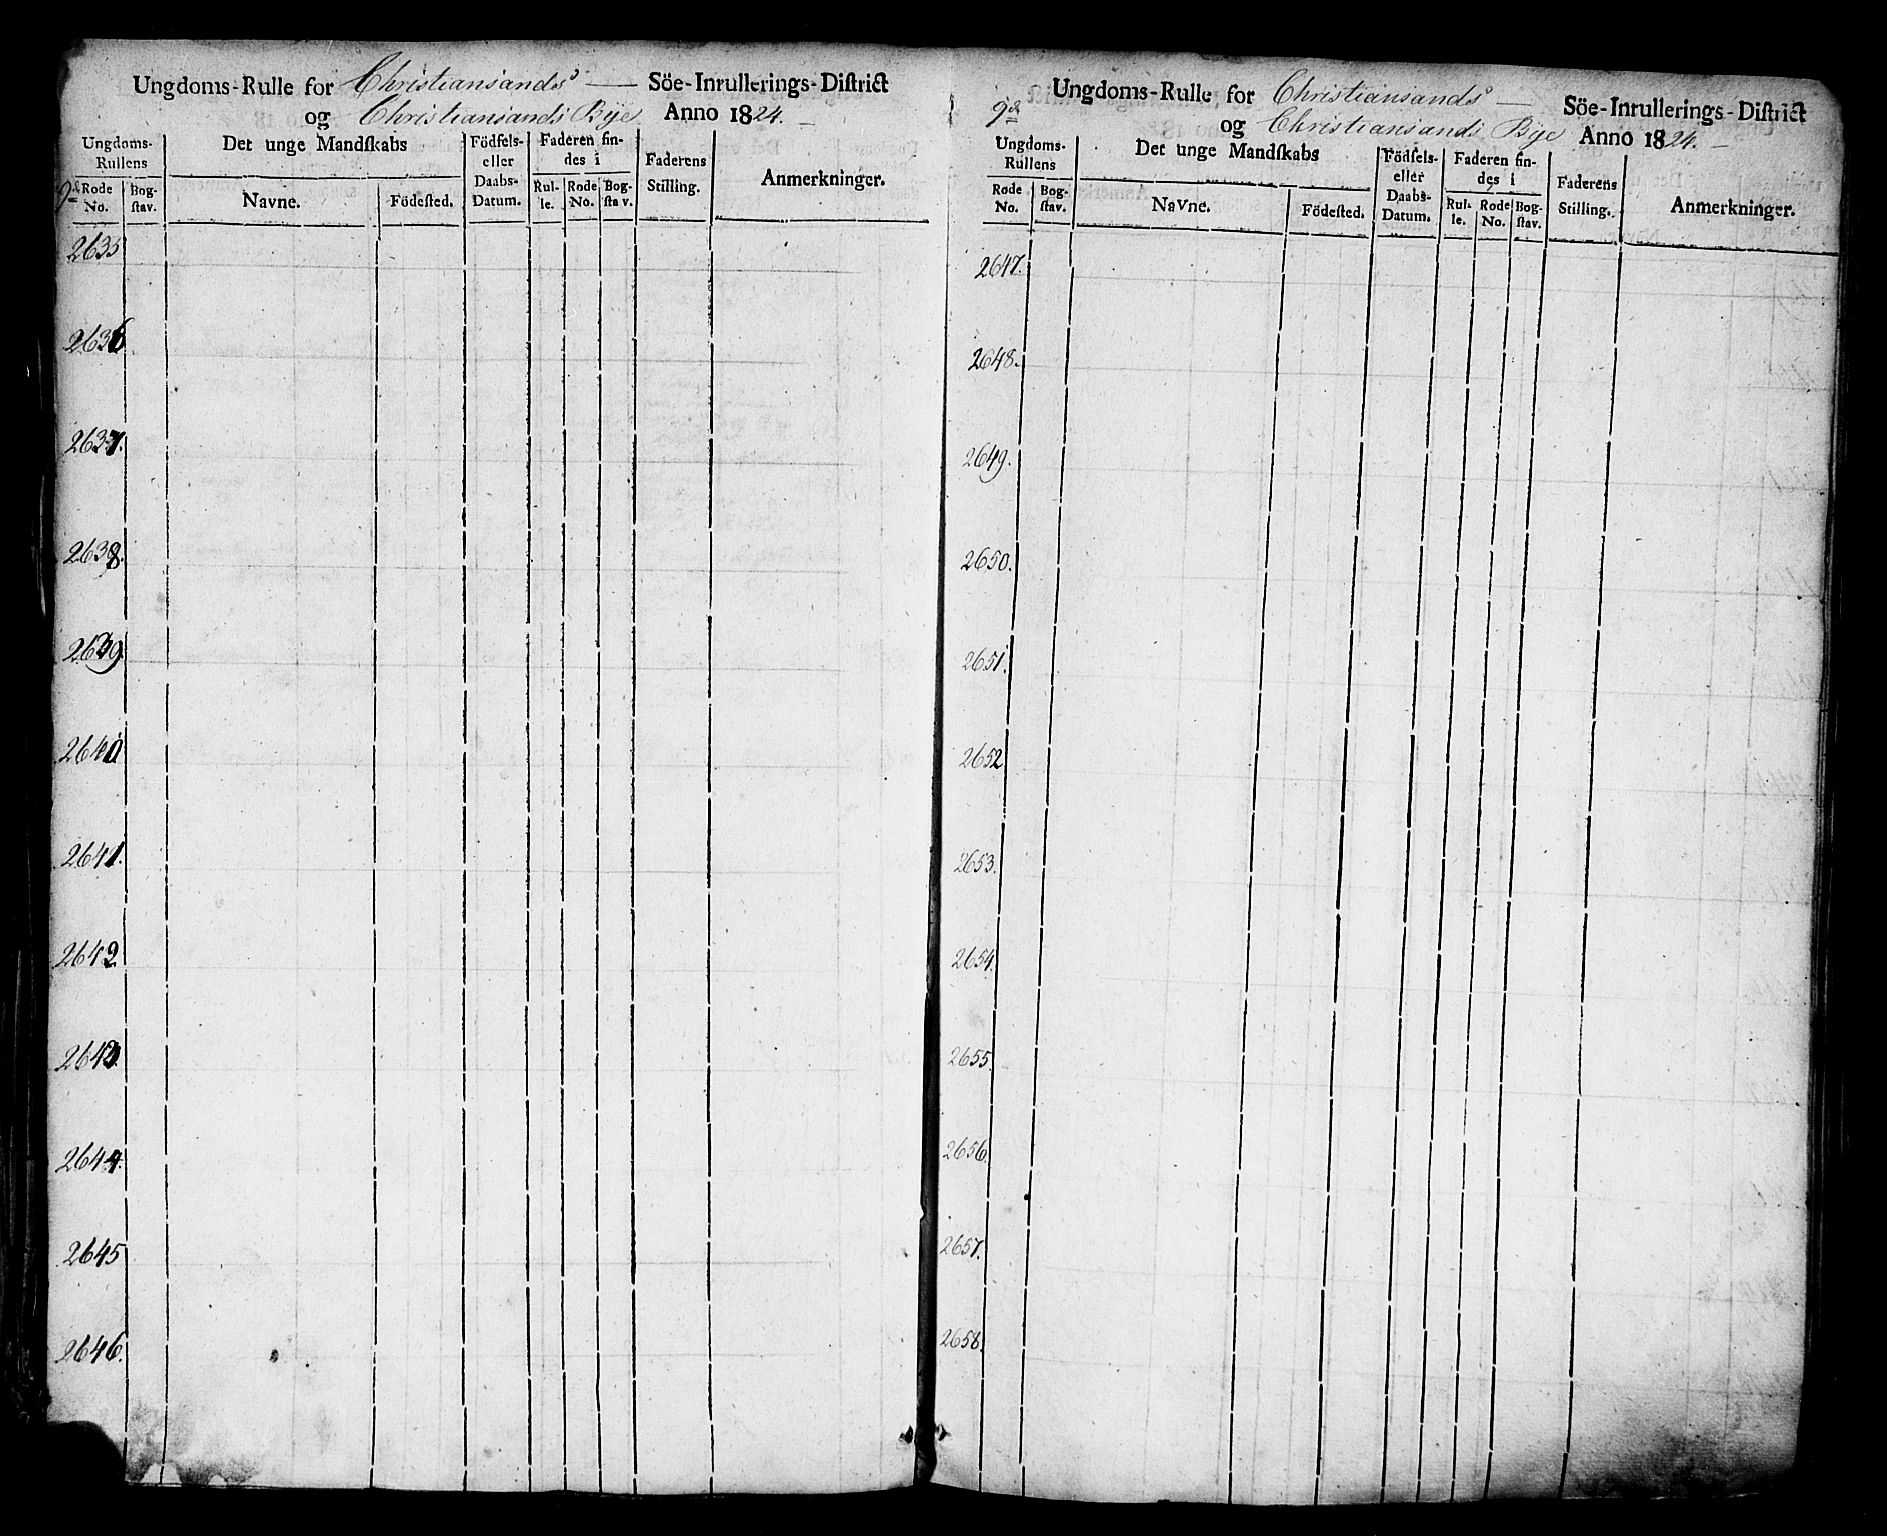 Ungdoms-Rulle for Christiansands Söe-Inrullerings-District
og Christiansands Bÿe Anno 1824.
Ungdoms-Rullens
Det unge Mandskabs
Födsels- eller Daabs-Datum.
Faderen findes i
Faderens Stilling.
Anmerkninger.
Rode No.
Bogstav.
Navne.
Födested.
Rulle.
Rode No.
Bogstav.
2635
2636
2637.
2638.
2639.
2640
2641.
2642
2643.
2644.
2645
2646.
Ungdoms-Rulle for Christiansands Söe-Inrullerings-District
og Christiansands Bÿe Anno 1824.
Ungdoms-Rullens
Det unge Mandskabs
Födsels- eller Daabs-Datum.
Faderen findes i
Faderens Stilling.
Anmerkninger.
Rode No.
Bogstav.
Navne.
Födested.
Rulle.
Rode No.
Bogstav.
2647.
2648.
2649.
2650.
2651.
2652
2653.
2654.
2655.
2656.
2657.
2658.